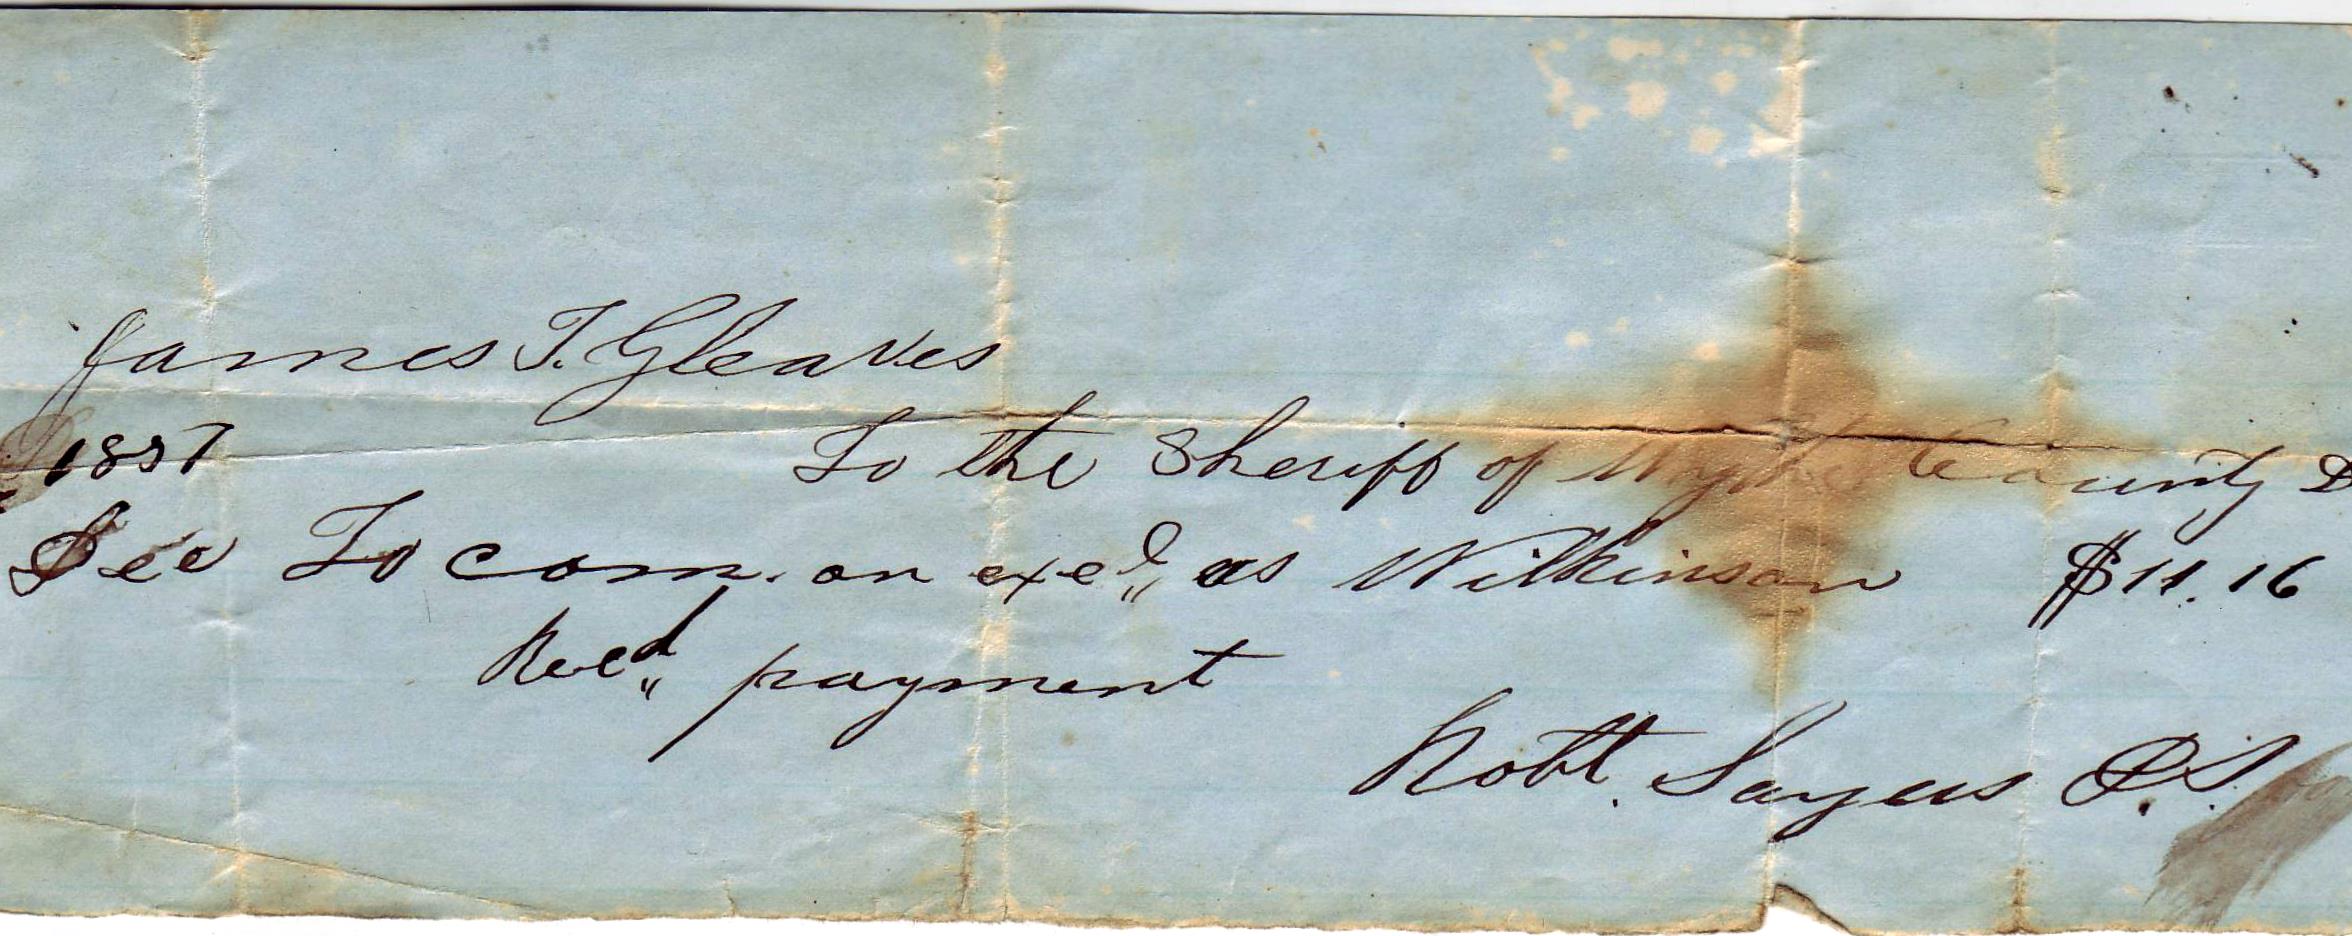 James T. Gleaves
1857
To the Sheriff of Wythe County D
Dec To com. on exe" as Wilkinson $11.16
Recd" payment
Robt. Sayers D.S.